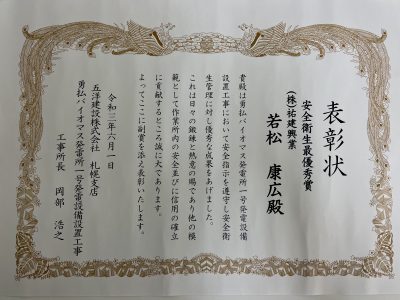 表彰状
安全衛生最優秀賞
(株)祐建興業
若松 康広殿
貴殿は勇払バイオマス発電所一号発電設備
設置工事において安全指示を遵守し安全衛
生管理に対し優秀な成果をあげました。
これは日々の鍛錬と熱意の賜であり他の模
範として作業所内の安全並びに信用の確立
に貢献するところ誠に大であります。
よってここに副賞を添え表彰いたします。
令和三年六月一日
五洋建設株式会社 札幌支店
勇払バイオマス発電所一号発電設備設置工事
工事所長 岡部 浩之